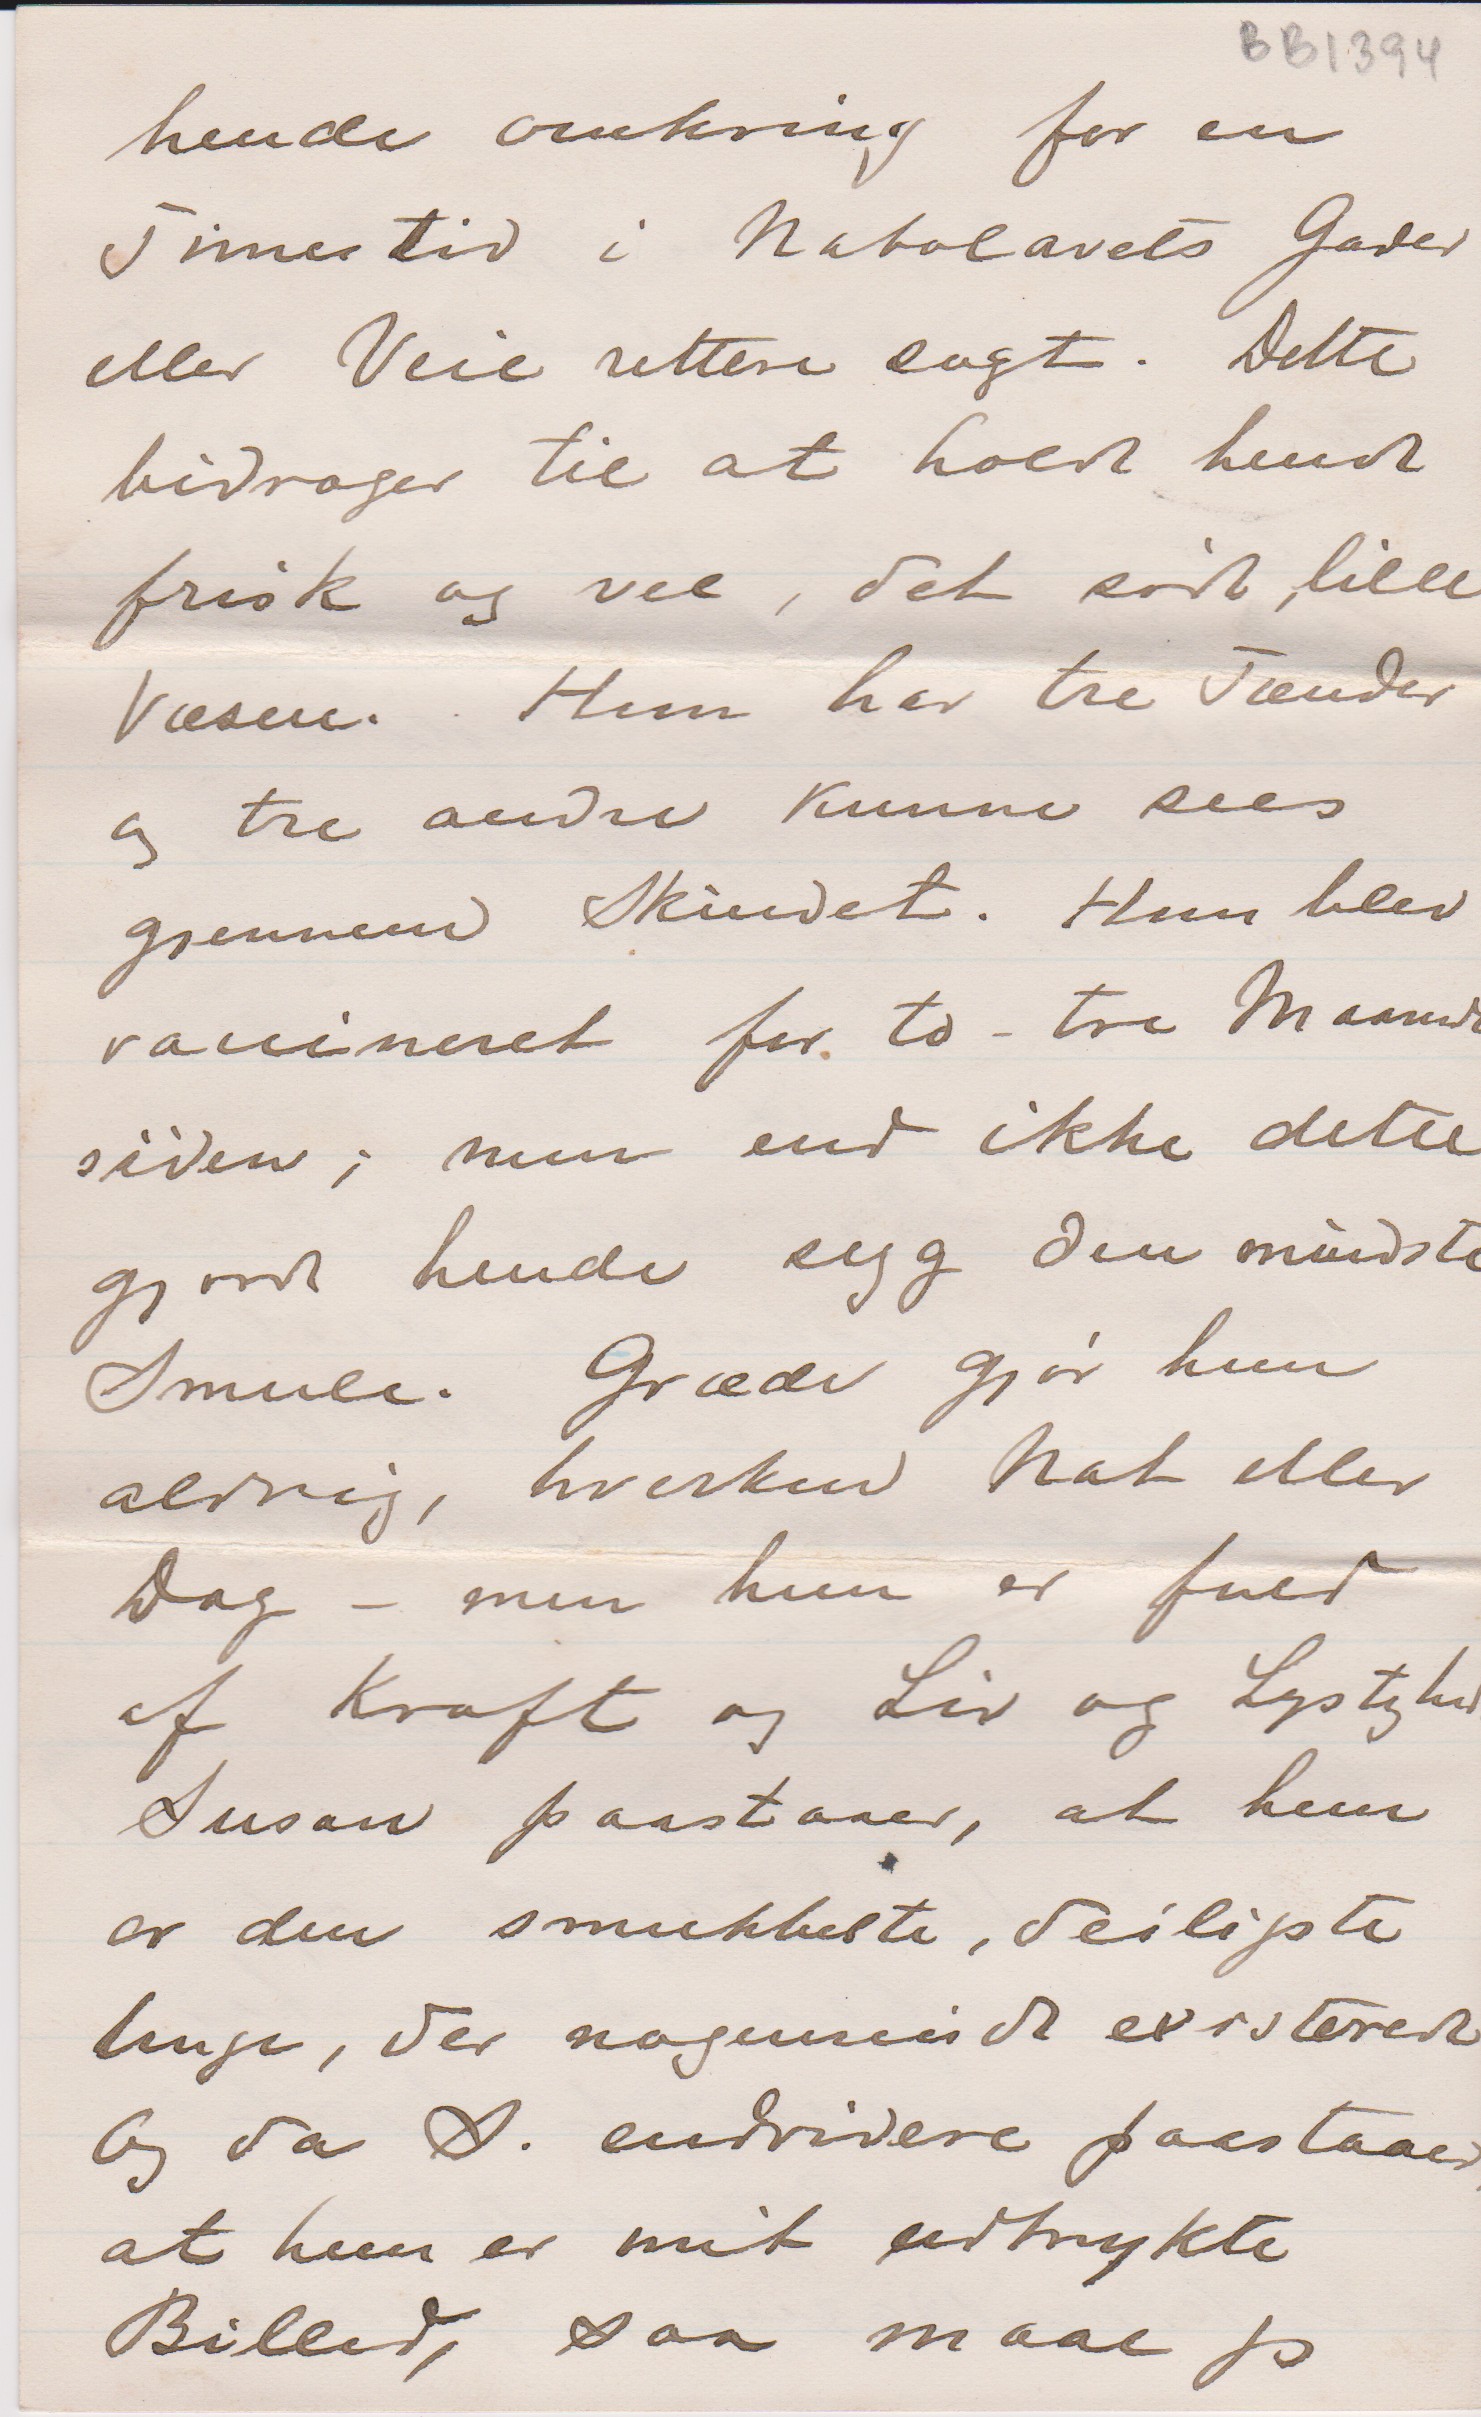 BB1394
hende omkring for en
Times tid i Nabolavets Gader
eller Veie rettere sagt. Dette
bidrager til at holde hende
frisk og vel, det söde, lille
Væsen. Hun har tre Tænder
og tre andre kunne sees
gjennem Skindet. Hun blev
vaccineret for to - tre Maaneder
siden; men end ikke dette
gjorde hende syg den mindste
Smule. Græde gjör hun
aldrig, hverken Nat eller
Dag - men hun er fuld
af Kraft og Liv og Lystighed
Susan paastaaer, at hun
er den smukkeste, deiligste
Unge, der nogensinde existerede
Og da S. endvidere paastaaer,
at hun er mit udtrykte
Billed, saa maae jo